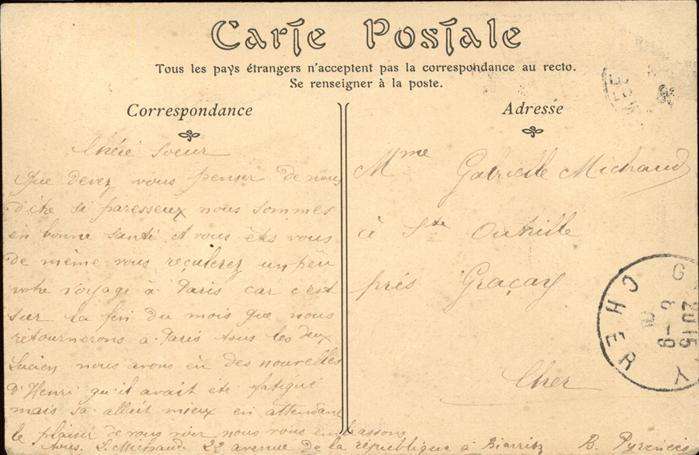 Carte Postale
Tous les pays étrangers n'acceptent pas la correspondance au recto.
Se renseigner à la poste.
Correspondance
Chère Soeur
Que devez vous penser de nous
d'être si paresseux nous sommes
en bonne santé et vous êts vous
de meme vous reculerez un peu
votre voyage à Paris car c'est
sur la fin du mois que nous
retournerons à Paris tous les deux
Lucien nous avons eu des nouvelles
d'Henri qu'il avait eté fatigué
mais sa allait mieux en attendant
le plaisir de vous voir nous vous embrassons
Michaud 22 avenue de la république à Biarritz B. Pyrénées
Adresse
Mme Gabrielle Michaud
à Ste Outrille
près Graçay
Cher
G Y
20-15
8-9
CHER